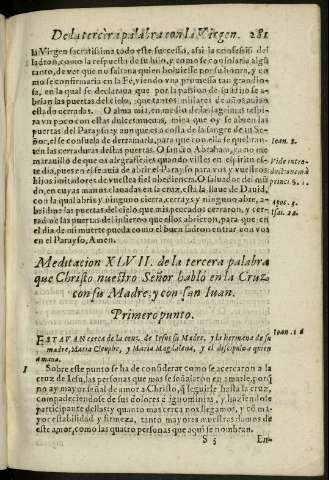 De la tercera palabra con la Virgen. 281
la Virgen sacratissima todo este sucesso, assi la confession del
ladron, como la respuesta de su hijo, y como se consolaria algũ
tanto, de ver que no faltaua quien boluiesse por su honra, y co
mo se confirmaria en la Fé, viendo vna promessa tan grandio-
sa, en la qual se declaraua que por la passion de su hijo se a-
brian las puertas del cielo, que tantos millares de años auian
estado cerradas. O alma mia, en medio de las lagrimas respi-
ra vn poco con estas dulces nueuas, mira que oy se abren las
puertas del Parayso y aunque es a costa de la sangre de tu Se-
ñor, el se consuela de derramarla, para que con ella se quebran-
ten las cerraduras destas puertas. O santo Abraham, ya no me
marauillo de que os alegrassedes quando vistes en espiritu es-
te dia, pues en el se auia de abrir el Parayso para vos y vuestros
hijos imitadores de vuestra Fè y obediencia. O saluador del mũ
do, en cuyas manos clauadas en la cruz, està la llaue de Dauid,
con la qual abris y ninguno cierra, cerrays y ninguno abre, a-
bridme las puertas del cielo que mis peccados cerraron, y cer-
radme las puertas del infierno que ellos abrieron, para que en
el dia de mi muerte pueda como el buen ladron entrar con vos
en el Parayso, Amen.
Ioan. 8.
Vide intro-
ductionem à
princi. §. 1.
Apoc. 3.
Isai. 22.
Meditacion XLVII. de la tercera palabra
que Christo nuestro Señor habló en la Cruz
con su Madre, y con san Iuan.
Primero punto.
ESTAVAN cerca de la cruz, de Iesus su Madre, y la hermana de su
madre, Maria Cleophe, y Maria Magdalena, y el discipulo a quien
amaua.
Ioan. 19
1 Sobre este punto se ha de considerar como se acercaron a la
cruz de Iesu, las personas que mas se señalaron en amarle, porq̃
no ay mayor señal de amor a Christo, q̃ seguirle hasta la cruz,
compadeciendole de sus dolores è ignominias, y haziendose
participante dellas: y quanto mas cerca nos llegamos, y cõ ma-
yor estabilidad y firmeza, tanto mayores muestras damos de
este amor, como las quatro personas que aqui se nombran.
S 5 En-